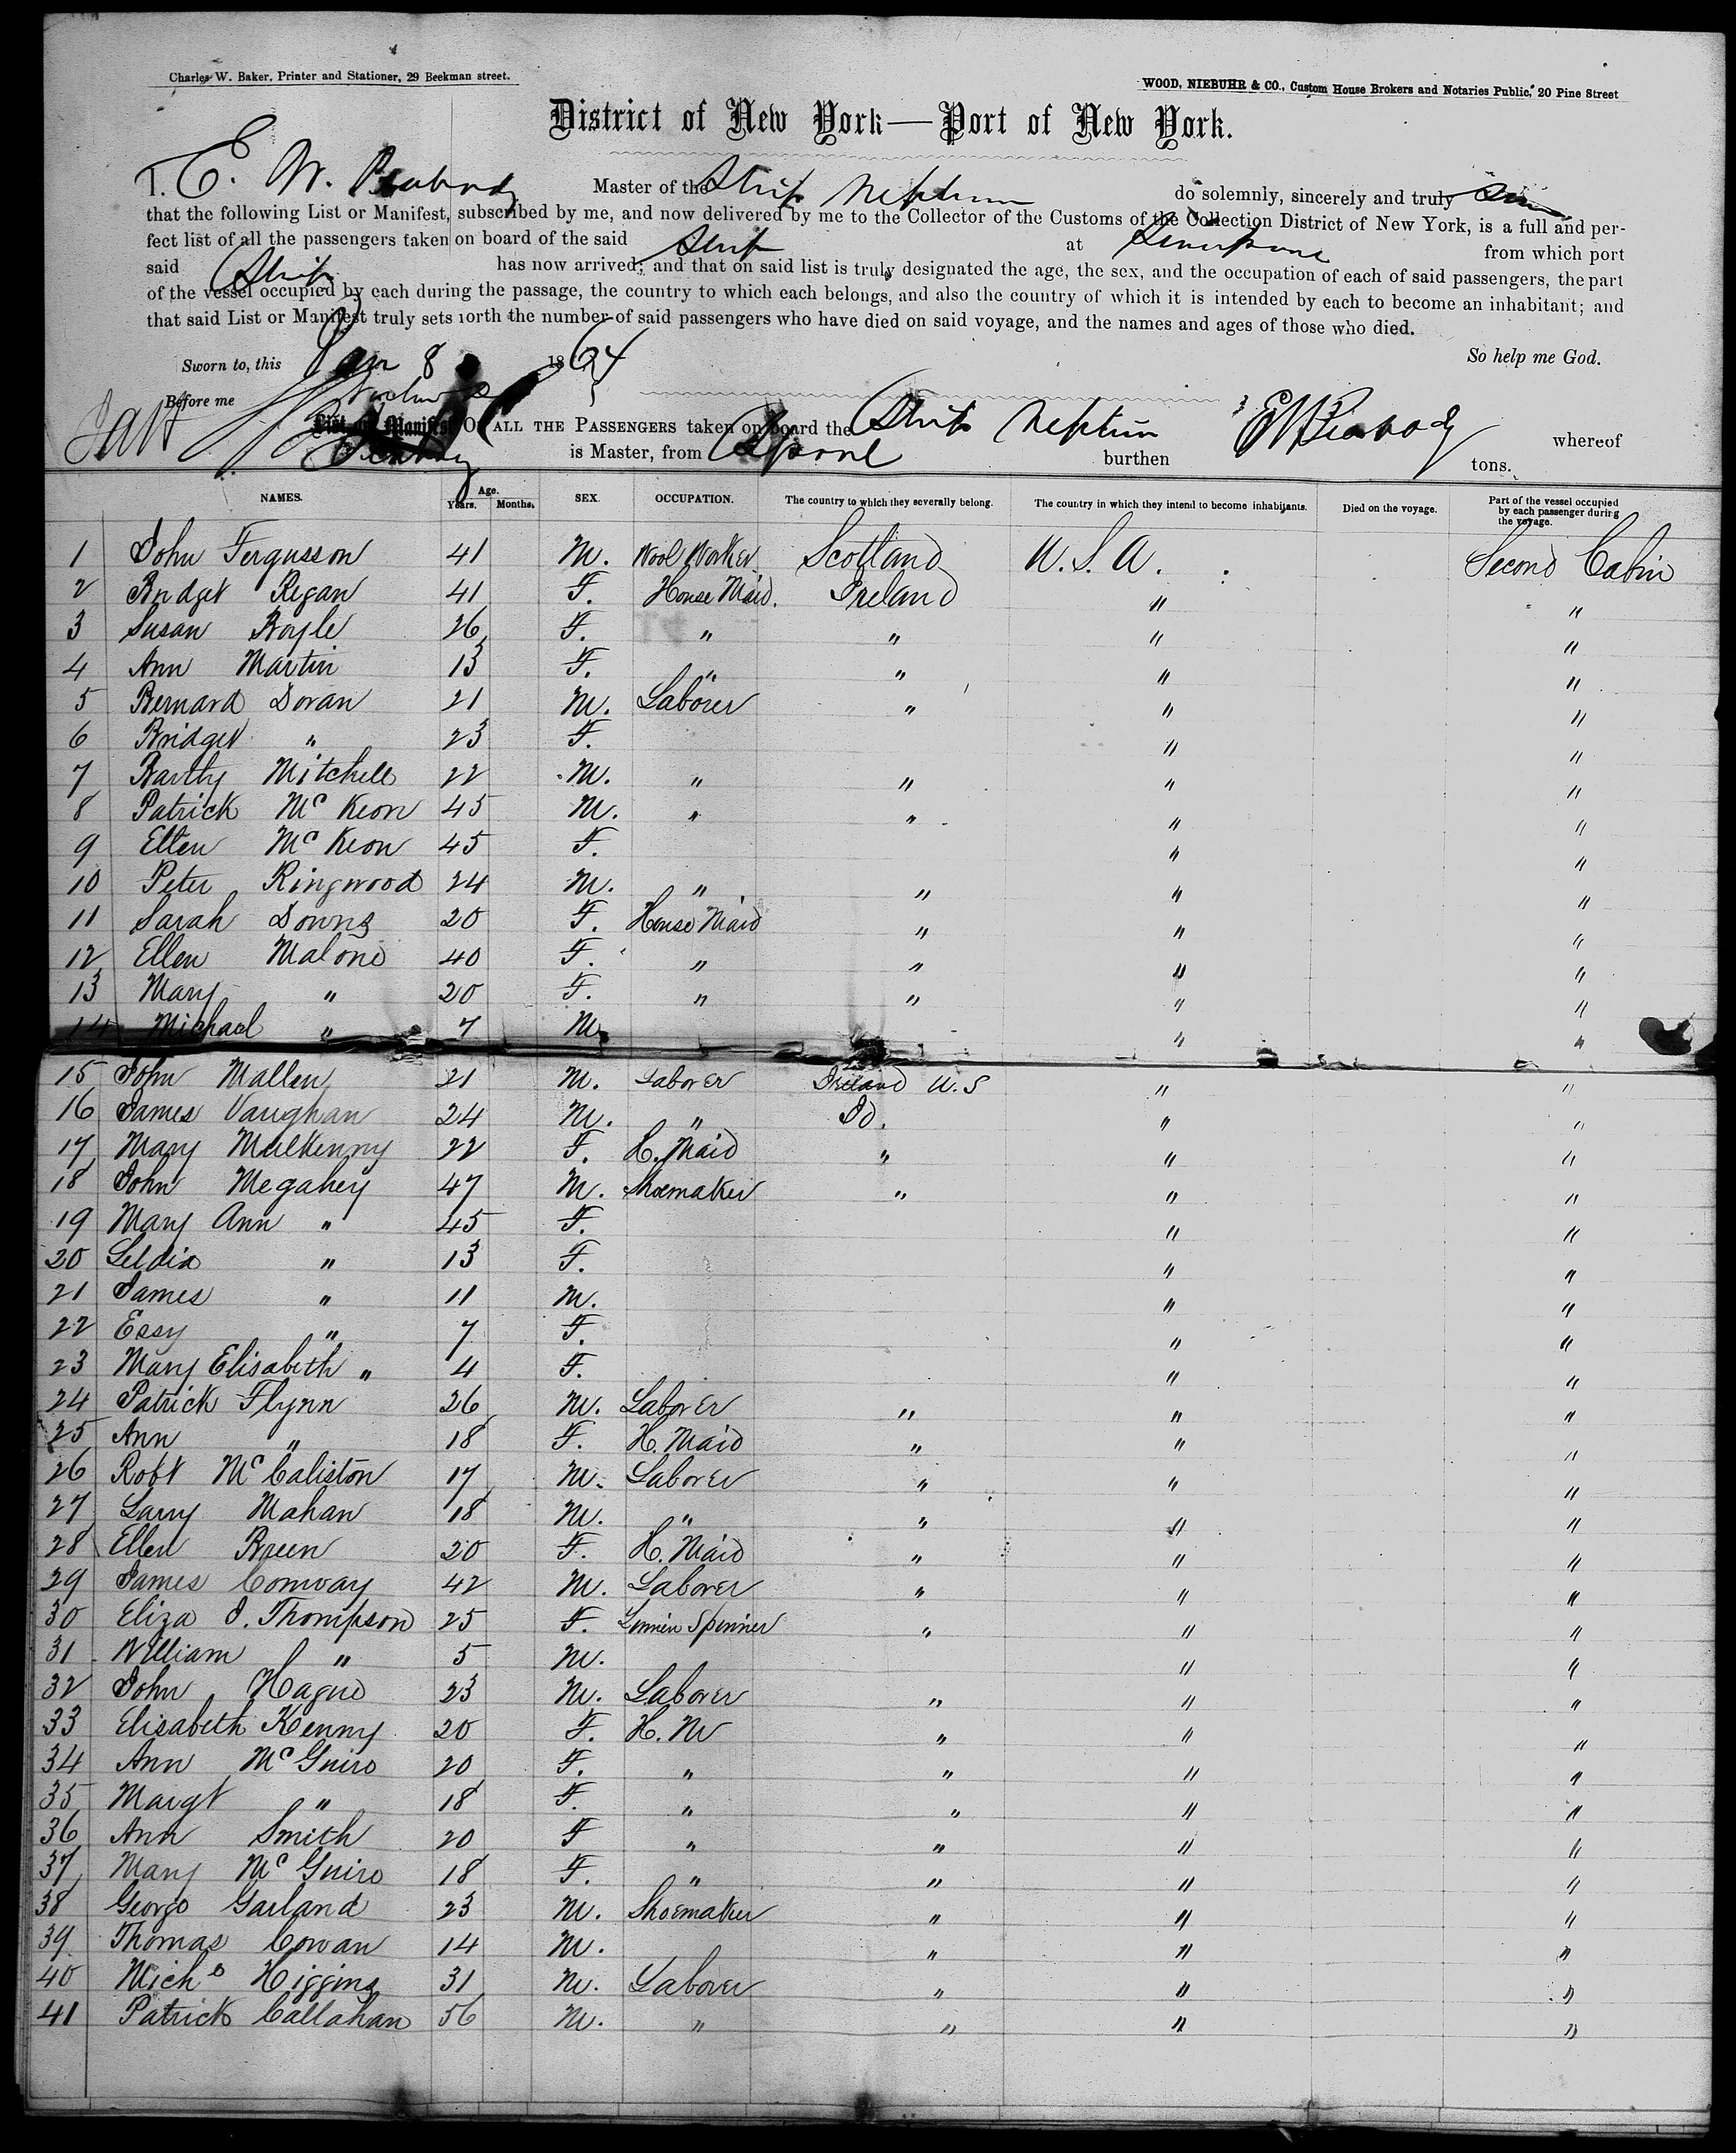 Charles W. Baker, Printer and Stationer, 29 Beekman street.
WOOD, NIEBUHR & CO., Custom House Brokers and Notaries Public, 20 Pine Street
District of New York—Port of New York.
I. E. W. Peabody Master of the Ship Neptune do solemnly, sincerely and truly
that the following List or Manifest, subscribed by me, and now delivered by me to the Collector of the Customs of the Collection District of New York, is a full and per-
fect list of all the passengers taken on board of the said Ship at Liverpool from which port
said Ship has now arrived; and that on said list is truly designated the age, the sex, and the occupation of each of said passengers, the part
of the vessel occupied by each during the passage, the country to which each belongs, and also the country of which it is intended by each to become an inhabitant; and
that said List or Manifest truly sets forth the number of said passengers who have died on said voyage, and the names and ages of those who died.
Sworn to, this Jan 8 1864 So help me God.
Before me
List or Manifest OF ALL THE PASSENGERS taken on board the Ship Neptune E W Peabody whereof
Peabody is Master, from Lpool burthen tons.
NAMES. Age. Years. Months. SEX. OCCUPATION. The country to which they severally belong. The country in which they intend to become inhabitants. Died on the voyage. Part of the vessel occupied by each passenger during the voyage.
1 John Fergusson 41 M. Wool Worker Scotland U.S.A. Second Cabin
2 Bridget Regan 41 F. House Maid. Ireland " "
3 Susan Boyle 26 F. " " " "
4 Ann Martin 13 F. " " " "
5 Bernard Doran 21 M. Laborer " " "
6 Bridget " 23 F. " "
7 Barthy Mitchell 22 M. " " " "
8 Patrick Mc Keon 45 M. " " " "
9 Ellen Mc Keon 45 F. " "
10 Peter Ringwood 24 M. " " " "
11 Sarah Downs 20 F. House Maid " " "
12 Ellen Malone 40 F. " " " "
13 Mary " 20 F. " " " "
14 Michael " 7 M. " "
15 John Mallen 21 M. Laborer Ireland U.S " "
16 James Vaughan 24 M. " Do. " "
17 Mary Mulkenny 22 F. H. Maid " " "
18 John Megahey 47 M. Shoemaker " " "
19 Mary Ann " 45 F. " "
20 Leldia " 13 F. " "
21 James " 11 M. " "
22 Essy " 7 F. " "
23 Mary Elisabeth " 4 F. " "
24 Patrick Flynn 26 M. Laborer " " "
25 Ann " 18 F. H. Maid " " "
26 Robt McCaliston 17 M. Laborer " " "
27 Larry Mahan 18 M. " " " "
28 Ellen Breen 20 F. H. Maid " " "
29 James Conway 42 M. Laborer " " "
30 Eliza J. Thompson 25 F. Linnen Spinner " " "
31 William " 5 M. " "
32 John Hague 23 M. Laborer " " "
33 Elisabeth Kenny 20 F. H. M " " "
34 Ann McGuire 20 F. " " " "
35 Margt " 18 F. " " " "
36 Ann Smith 20 F " " " "
37 Mary McGuire 18 F. " " " "
38 George Garland 23 M. Shoemaker " " "
39 Thomas Cowan 14 M. " " "
40 Michl Higgins 31 M. Laborer " " "
41 Patrick Callahan 56 M. " " " "